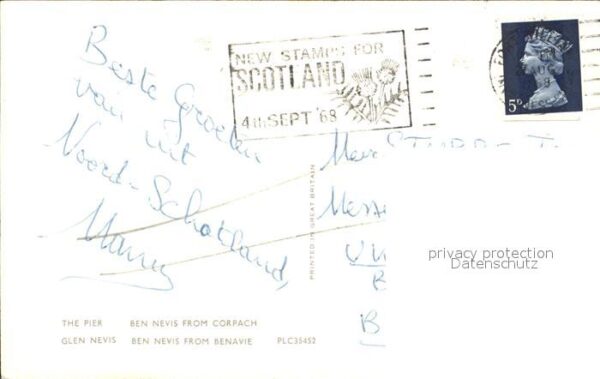 Beste Groeten
van uit
Noord-Schotland,
NEW STAMPS FOR
SCOTLAND
4th SEPT '68
AUG
5D
PRINTED IN GREAT BRITAIN
privacy protection
Datenschutz
B
THE PIER BEN NEVIS FROM CORPACH
GLEN NEVIS BEN NEVIS FROM BENAVIE PLC35452